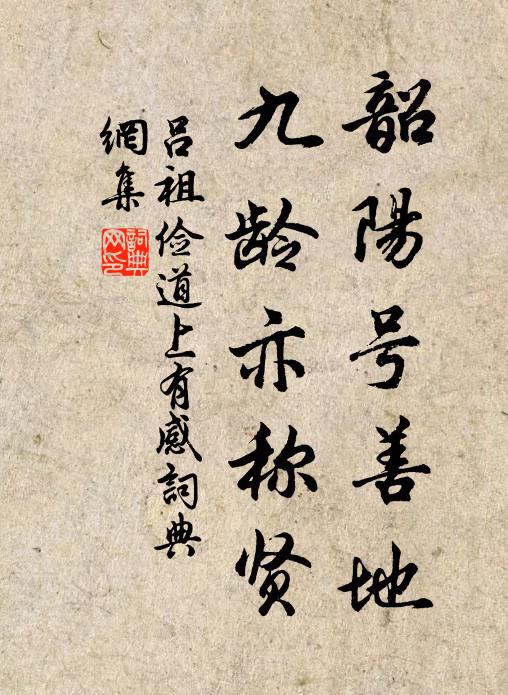 韶陽号善地
九龄亦称贤
吕祖俭道上有感詞典
網集
詞典
网印